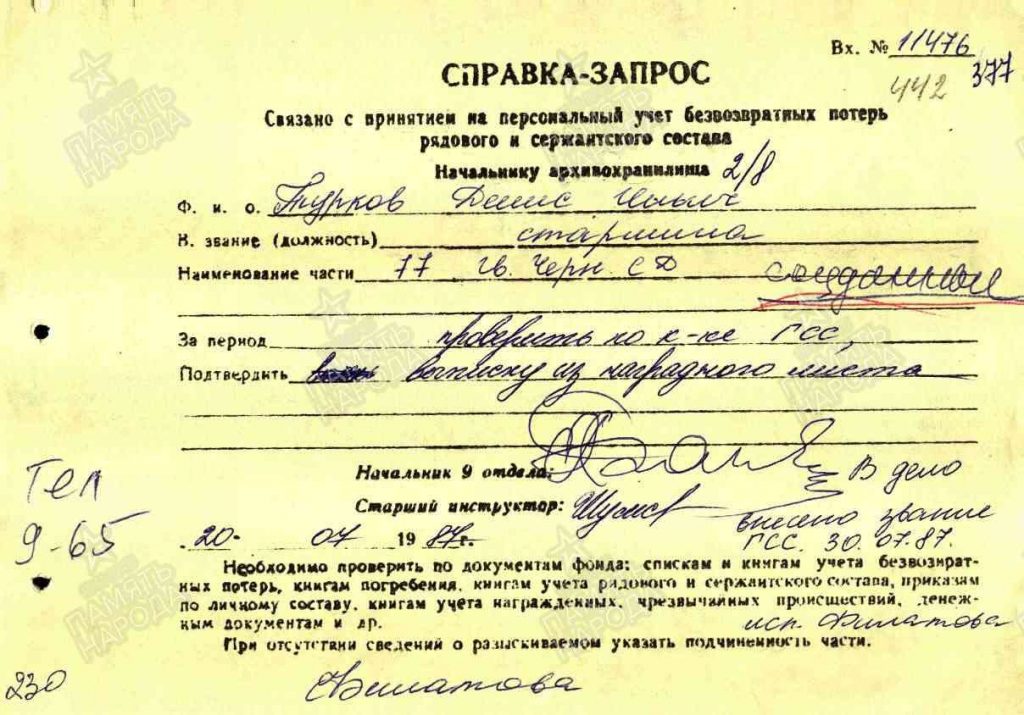 Вх. № 11476
377
442
СПРАВКА-ЗАПРОС
Связано с принятием на персональный учет безвозвратных потерь
рядового и сержантского состава
Начальнику архивохранилища 2/8
Ф. и. о. Турков Денис Ильич
В. звание (должность) старшина
Наименование части 77 Гв. Черн. СД
За период проверить по к-ке ГСС,
Подтвердить выписку из наградного листа
Начальник 9 отдела:
В дело
Старший инструктор:
внесено звание
ГСС. 30.07.87.
Тел
9-65
20. 07 1987 г.
Необходимо проверить по документам фонда: спискам и книгам учета безвозврат-
ных потерь, книгам погребения, книгам учета рядового и сержантского состава, приказам
по личному составу, книгам учета награжденных, чрезвычайных происшествий, денеж-
ным документам и др.
исп. Филатова
При отсутствии сведений о разыскиваемом указать подчиненность части.
230
Филатова
ПАМЯТЬ НАРОДА